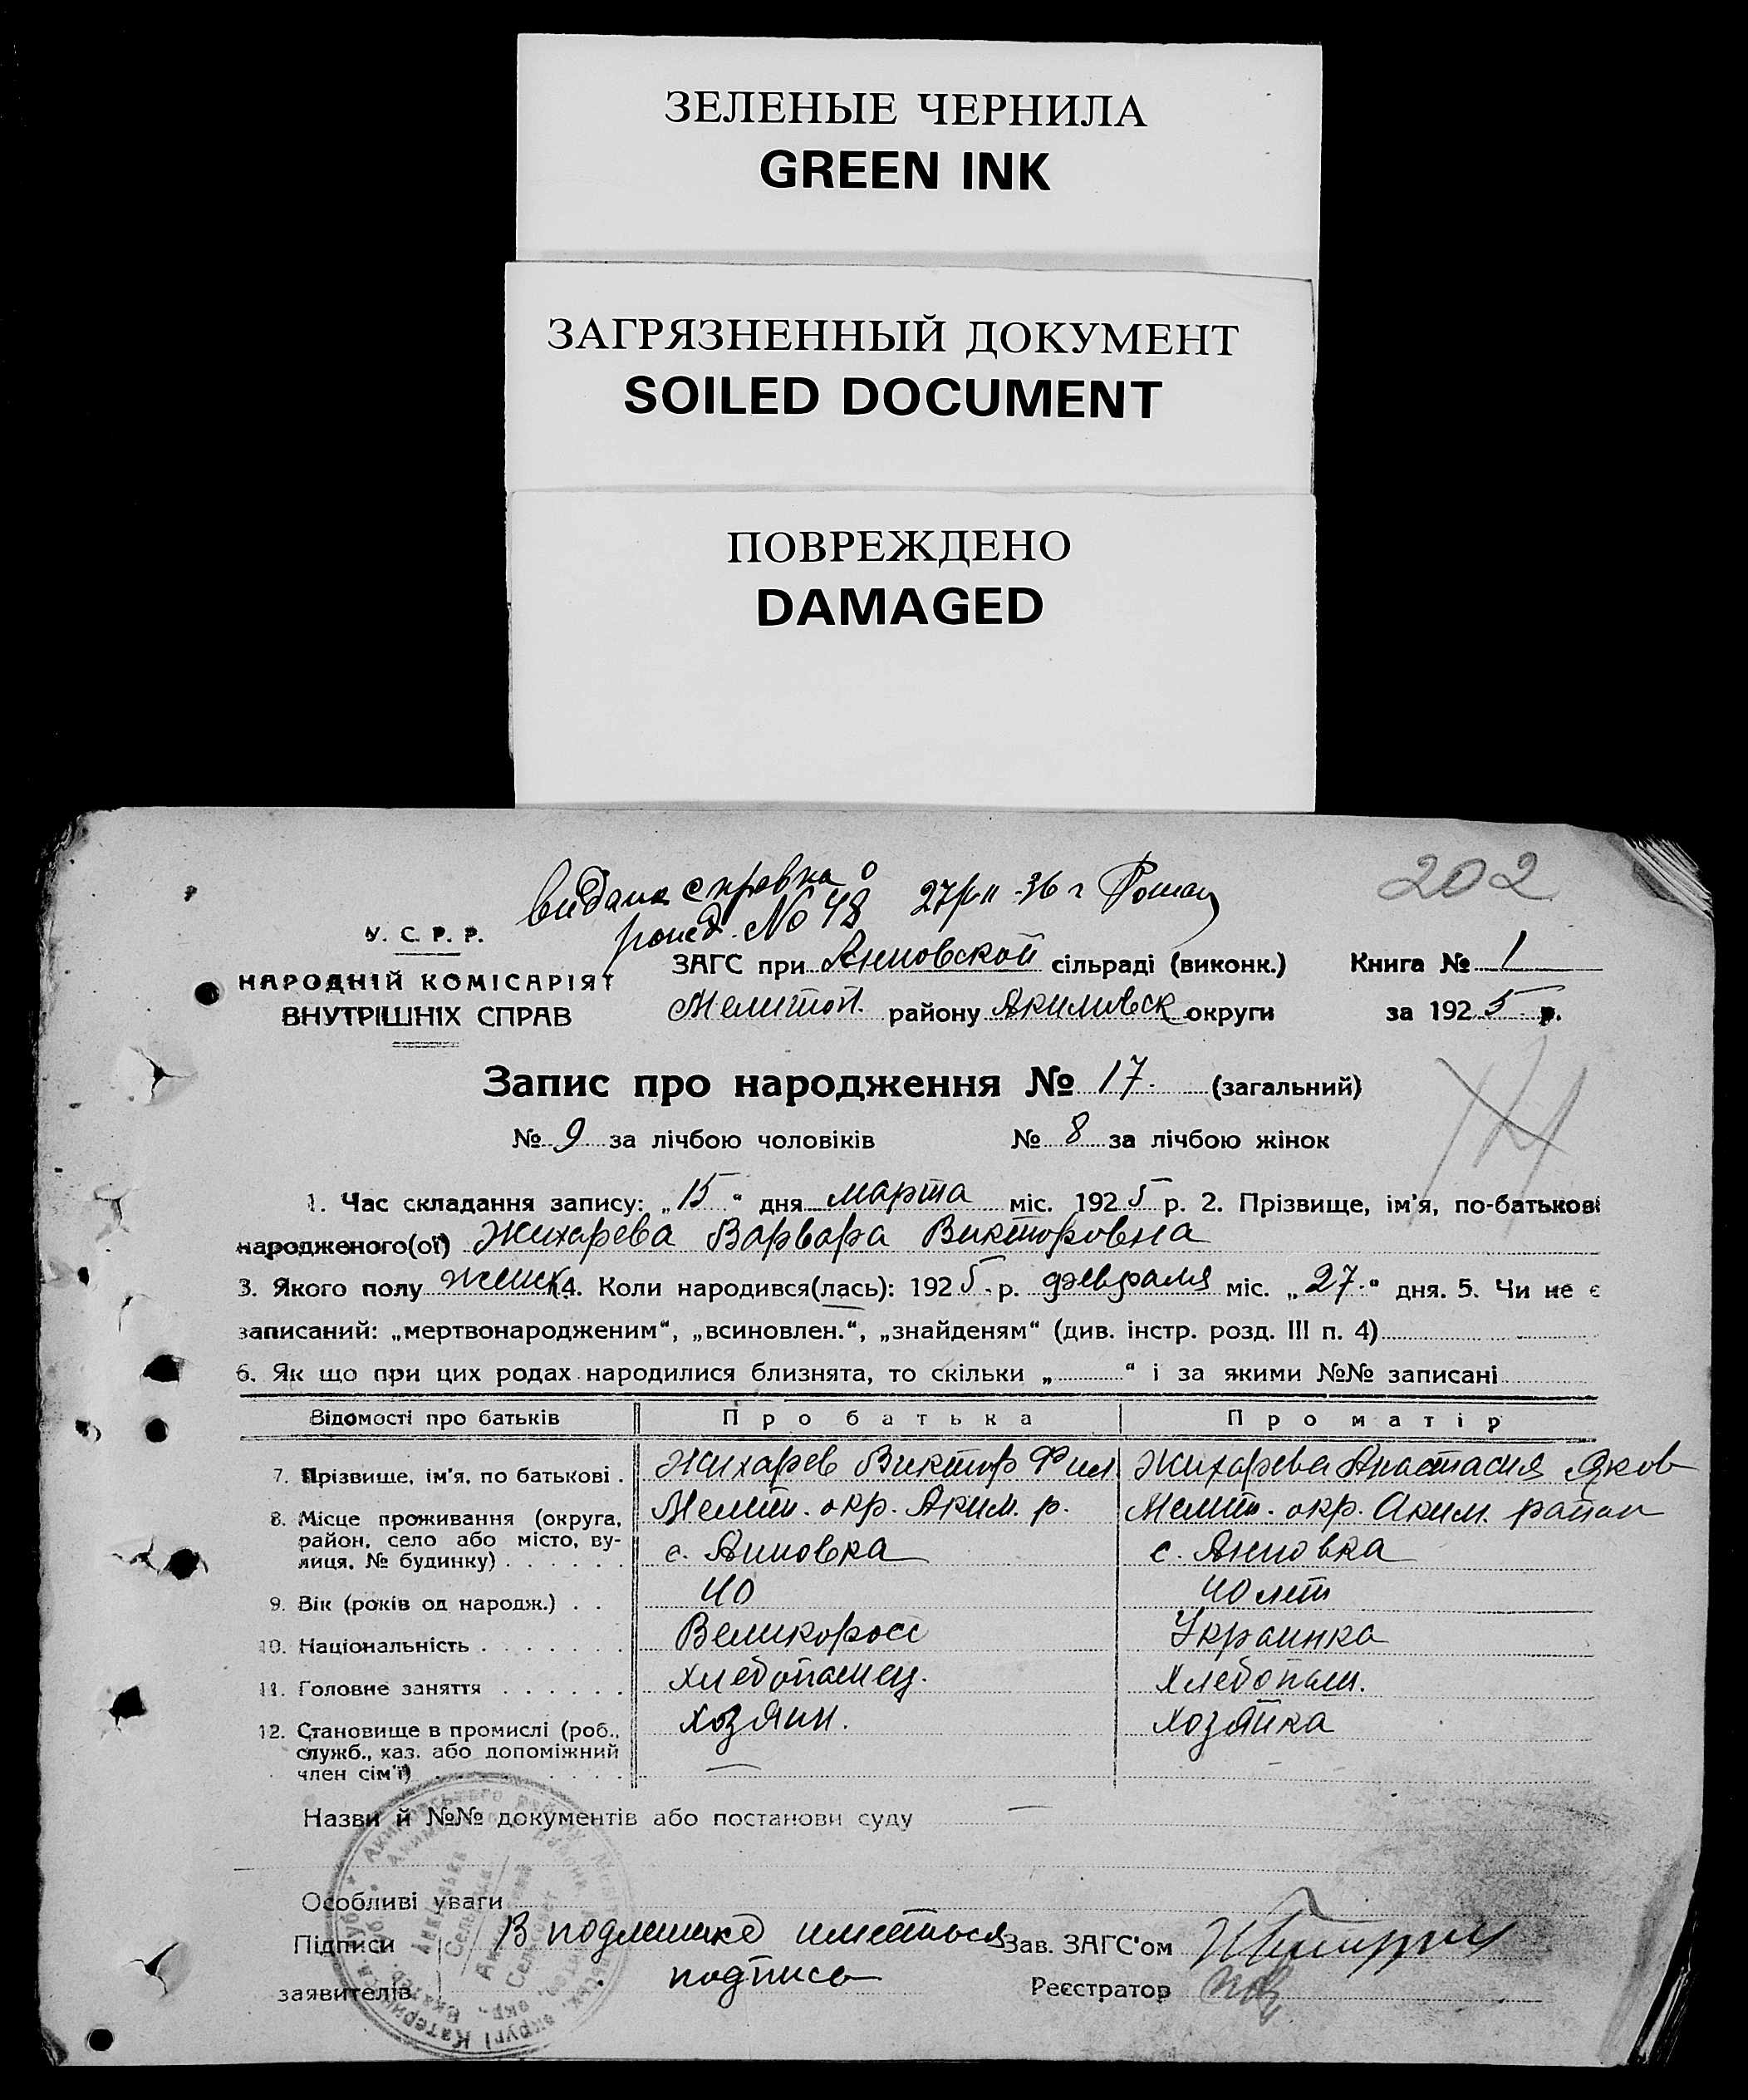 ЗЕЛЕНЫЕ ЧЕРНИЛА
GREEN INK
ЗАГРЯЗНЕННЫЙ ДОКУМЕНТ
SOILED DOCUMENT
ПОВРЕЖДЕНО
DAMAGED
видана справка о 27/II-36 г
рожд. № 48
202
У. С. Р. Р.
НАРОДНІЙ КОМІСАРІЯТ
ВНУТРІШНІХ СПРАВ
ЗАГС при Анновской сільраді (виконк.) Книга № 1
Мелитоп. району Акимовск округи за 1925 р.
Запис про народження № 17. (загальний)
№ 9 за лічбою чоловіків № 8 за лічбою жінок
1. Час складання запису: „15" дня марта міс. 1925 р. 2. Прізвище, ім'я, по-батькові
народженого(ої) Жихарева Варвара Викторовна
3. Якого полу женск 4. Коли народився(лась): 1925 р. февраля міс. „27" дня. 5. Чи не є
записаний: „мертвонародженим", „всиновлен.", „знайденям" (див. інстр. розд. III п. 4)
6. Як що при цих родах народилися близнята, то скільки „ " і за якими №№ записані
Відомості про батьків Про батька Про матір
7. Прізвище, ім'я, по батькові . Жихарев Виктор Фил Жихарева Анастасия Яков
8. Місце проживання (округа, Мелит. окр. Аким. р. Мелит. окр. Аким. район
район, село або місто, ву-
лиця, № будинку) с. Анновка с. Анновка
9. Вік (років од народж.) . . 40 40 лет
10. Національність Великоросс Украинка
11. Головне заняття Хлебопашец. Хлебопаш.
12. Становище в промислі (роб., Хозяин. Хозяйка
служб., хаз. або допоміжний
член сім'ї) —
Назви й №№ документів або постанови суду —
Особливі уваги
Підписи В подлинике иметься Зав. ЗАГС'ом
заявителів подпись Реєстратор